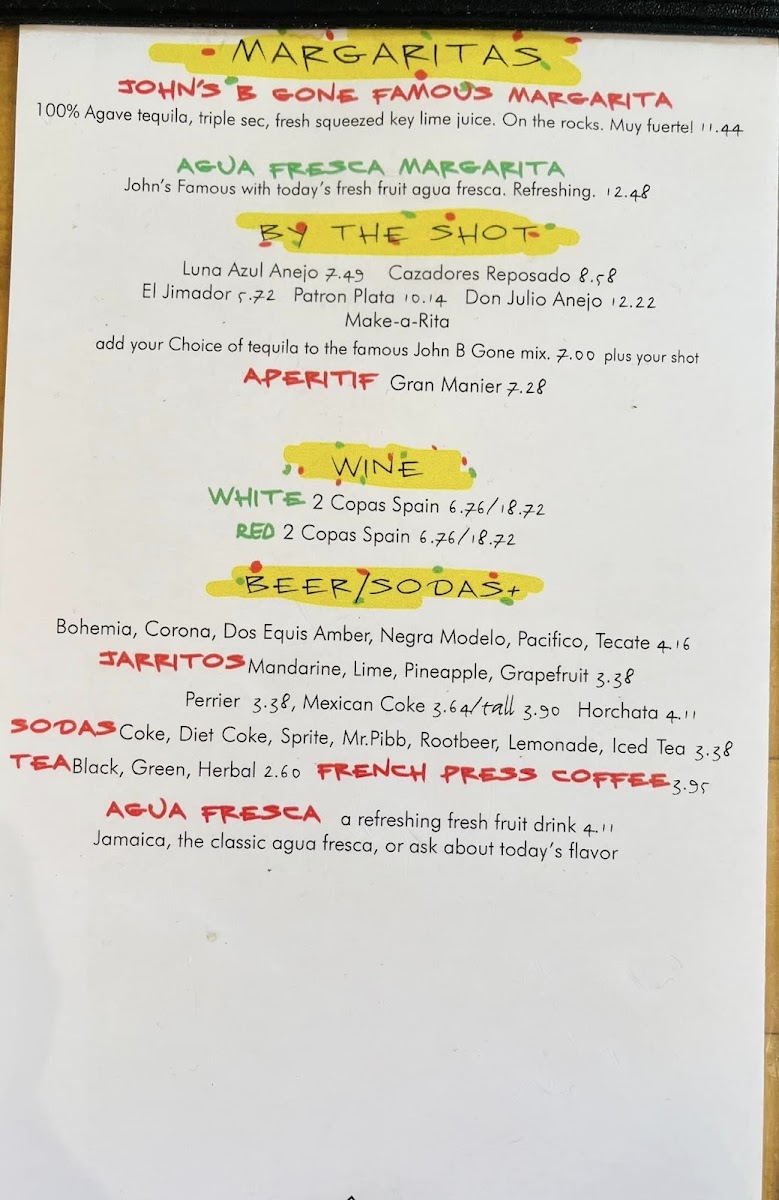 MARGARITAS
JOHN'S B GONE FAMOUS MARGARITA
100% Agave tequila, triple sec, fresh squeezed key lime juice. On the rocks. Muy fuerte! 11.44
AGUA FRESCA MARGARITA
John's Famous with today's fresh fruit agua fresca. Refreshing. 12.48
BY THE SHOT
Luna Azul Anejo 7.49 Cazadores Reposado 8.58
El Jimador 5.72 Patron Plata 10.14 Don Julio Anejo 12.22
Make-a-Rita
add your Choice of tequila to the famous John B Gone mix. 7.00 plus your shot
APERITIF Gran Manier 7.28
WINE
WHITE 2 Copas Spain 6.76/18.72
RED 2 Copas Spain 6.76/18.72
BEER/SODAS+
Bohemia, Corona, Dos Equis Amber, Negra Modelo, Pacifico, Tecate 4.16
JARRITOS Mandarine, Lime, Pineapple, Grapefruit 3.38
Perrier 3.38, Mexican Coke 3.64/tall 3.90 Horchata 4.11
SODAS Coke, Diet Coke, Sprite, Mr.Pibb, Rootbeer, Lemonade, Iced Tea 3.38
TEA Black, Green, Herbal 2.60 FRENCH PRESS COFFEE 3.95
AGUA FRESCA a refreshing fresh fruit drink 4.11
Jamaica, the classic agua fresca, or ask about today's flavor